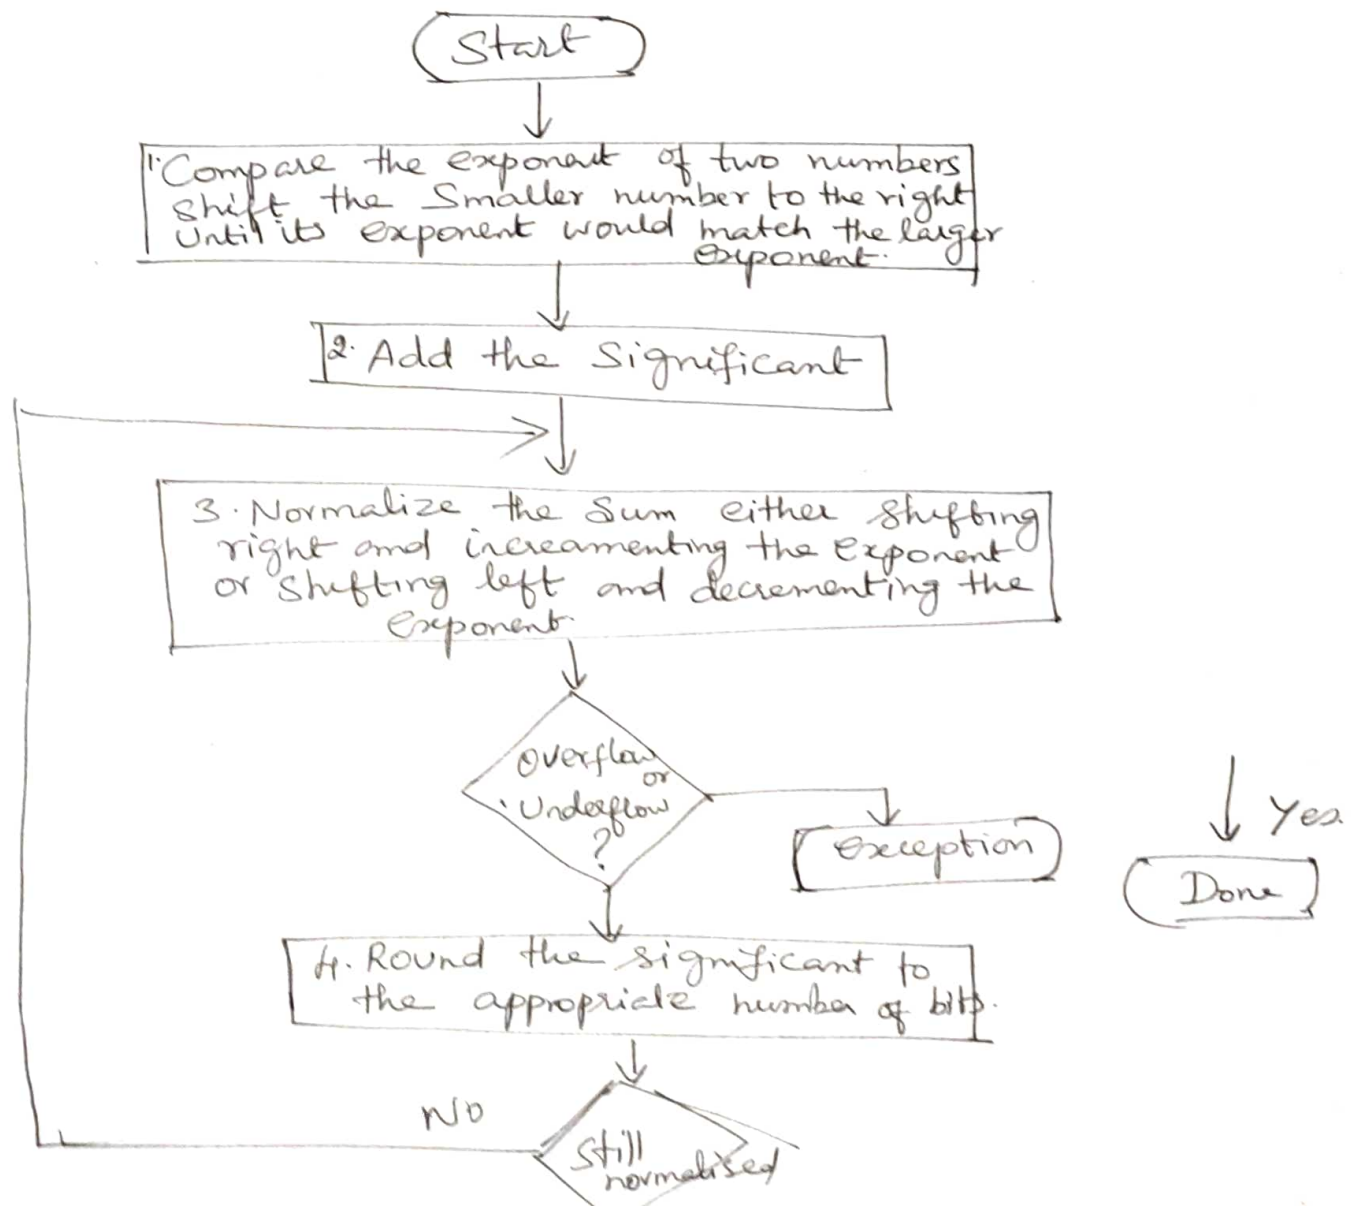 Start
1. Compare the exponent of two numbers
shift the Smaller number to the right
Until its exponent would match the larger
exponent.
2. Add the Significant
3. Normalize the Sum either Shifting
right and increamenting the exponent
or Shifting left and decrementing the
exponent.
Overflow
or
Underflow
?
Exception
Yes.
Done
4. Round the significant to
the appropriate number of bits.
NO
Still
normalised